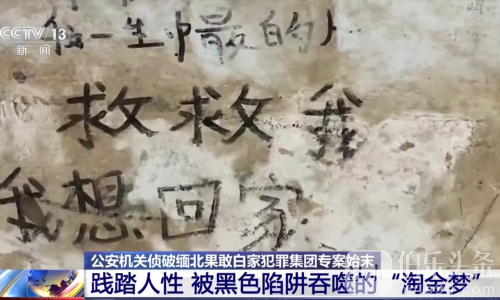 CCTV 13
新闻
一生中最的人
救救我
我想回家
公安机关侦破缅北果敢白家犯罪集团专案始末
践踏人性 被黑色陷阱吞噬的“淘金梦”
伯乐头条